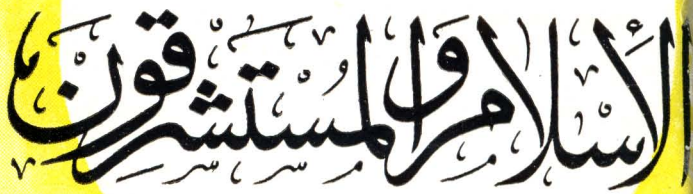 الإسلام والمستشرقون